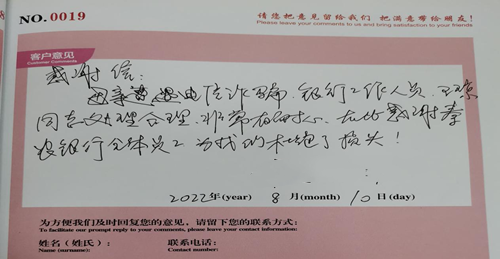 NO.0019
请您把意见留给我们 把满意带给朋友!
Please leave your comments to us and bring satisfaction to your friends
客户意见
Customer Comments
感谢信:
母亲 遇电信诈骗.银行工作人员.王琼
同志 理合理.非常有耐心.在此感谢秦
农银行全体员工 为我们 了损失!
2022年(year) 8月(month) 10日(day)
为方便我们及时回复您的意见, 请留下您的联系方式:
To facilitate our prompt reply to your comments, please leave your contact information:
姓名(姓氏): 联系电话:
Name (surname): Contact number: